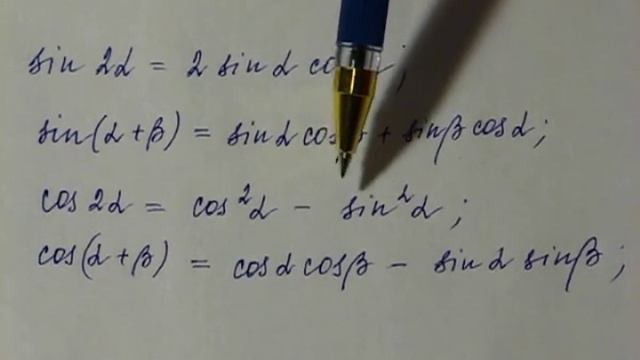 sin 2α = 2 sin α
sin(α+β) = sin α cos + sinβ cosα;
cos 2α = cos²α - sin²α;
cos(α+β) = cosα cosβ - sin α sinβ;